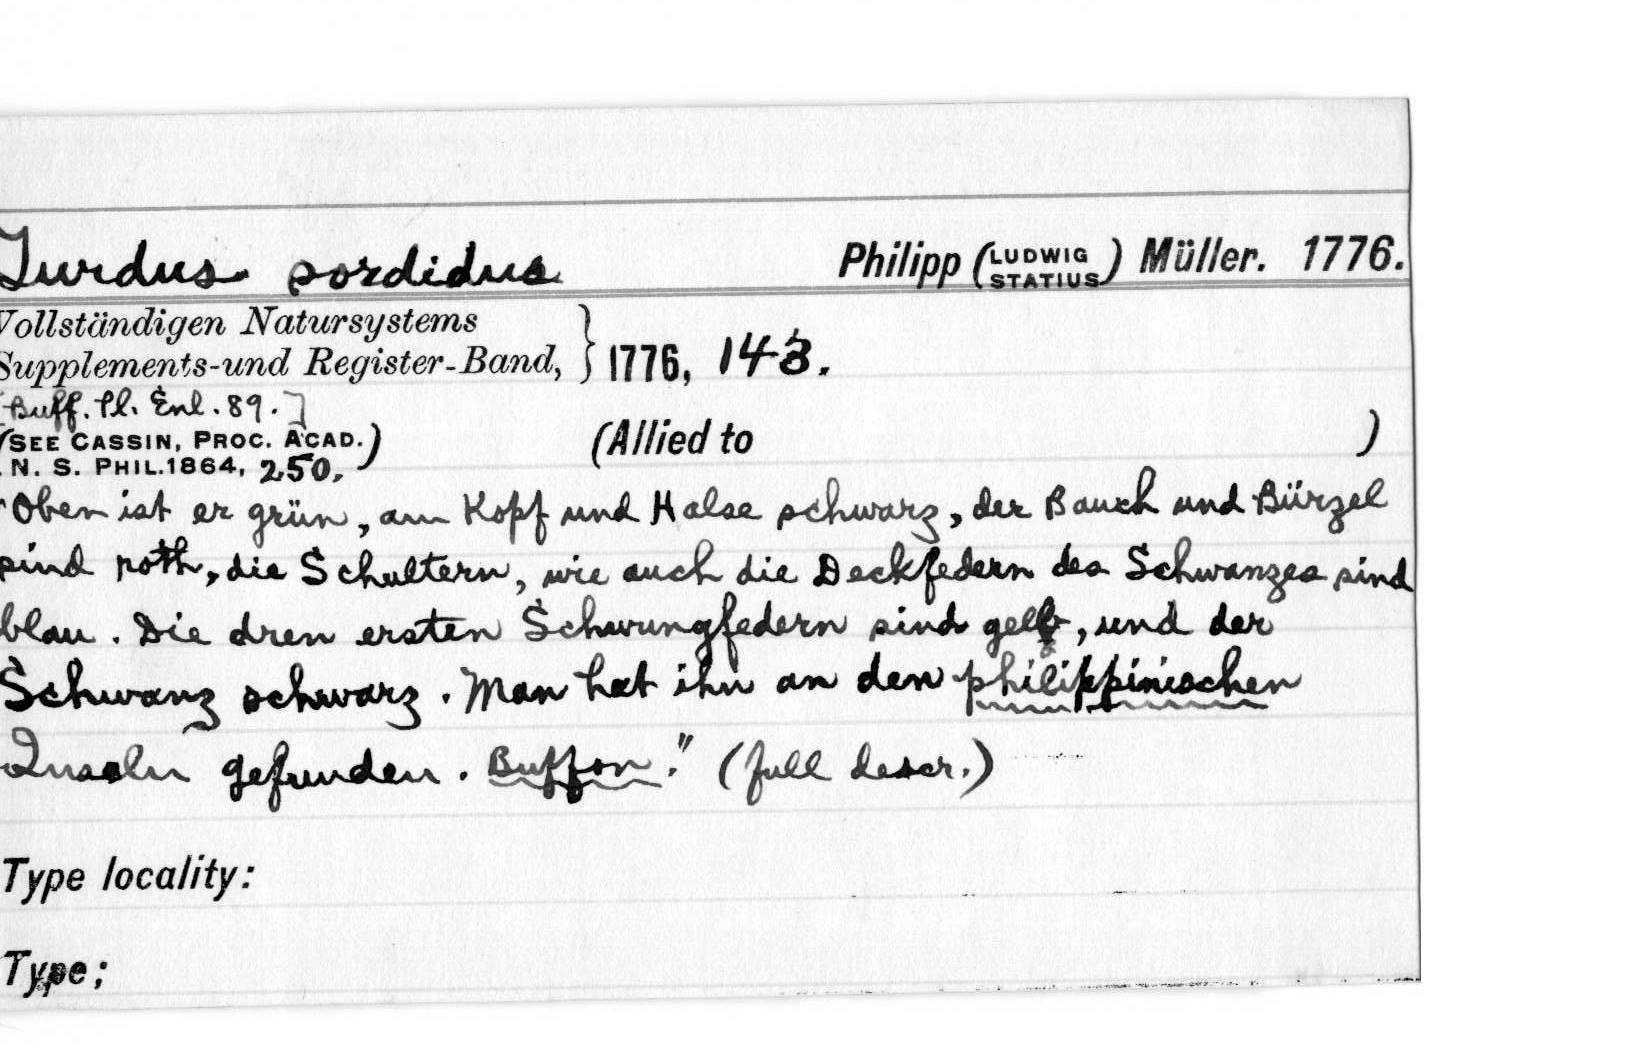 Turdus sordidus Philipp (LUDWIG STATIUS) Müller. 1776.
Vollständigen Natursystems
Supplements-und Register-Band, } 1776, 143.
[Buff. Pl. Enl. 89.]
(SEE CASSIN, PROC. ACAD.) (Allied to )
N. S. PHIL. 1864, 250.
"Oben ist er grün, am Kopf und Halse schwarz, der Bauch und Bürzel
sind roth, die Schultern, wie auch die Deckfedern des Schwanzes sind
blau. Die dren ersten Schwungfedern sind gelb, und der
Schwanz schwarz. Man hat ihn an den philippinischen
Inseln gefunden. Buffon." (full descr.)
Type locality:
Type;